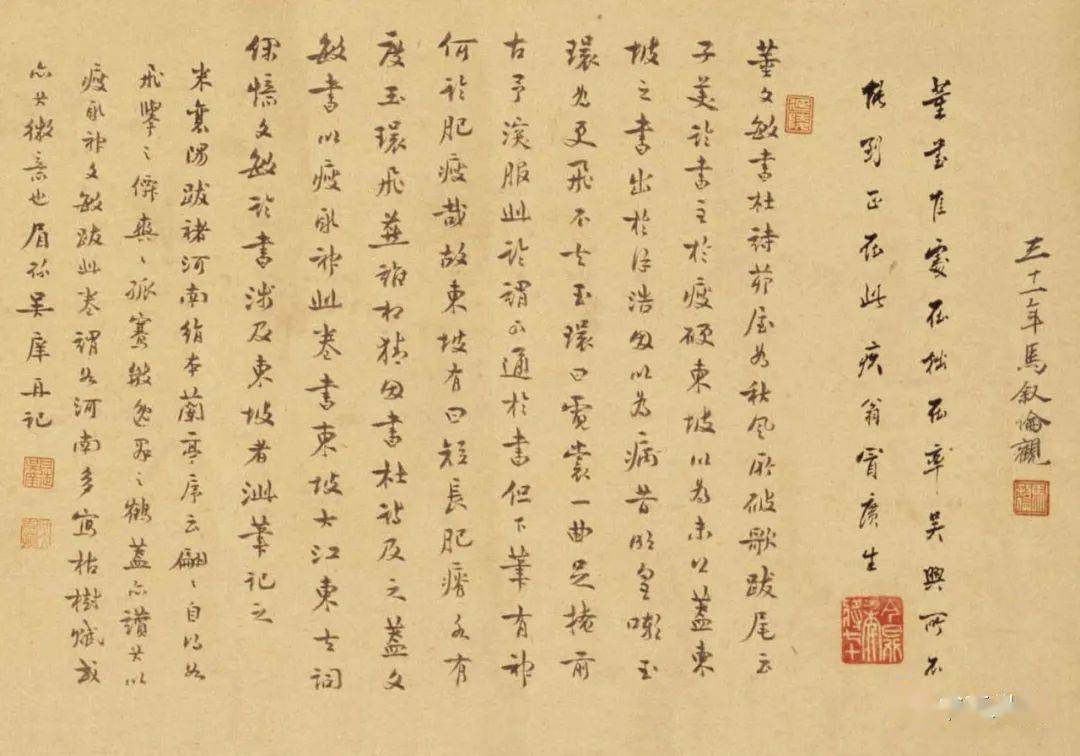 三十一年馬叙倫觀
董書佳處在拙在率吳興所不
能到正在此疚翁冒廣生
董文敏書杜詩茅屋為秋風所破歌跋尾云
子美論書主於瘦硬東坡以為未公蓋東
坡之書出於徐浩因以為病昔明皇嘲玉
環兒更飛不去玉環曰霓裳一曲足掩前
古予深服此論謂可通於書但下筆有神
何論肥瘦哉故東坡有曰短長肥瘠各有
度玉環飛燕相猜因書杜詩及之蓋文
敏書以瘦取神此卷書東坡大江東去詞
憶文敏論書涉及東坡者泚筆記之
米襄陽跋褚河南絹本蘭亭序云翩〻自得如
飛舉之僊爽〻孤騫類逸羣之鶴蓋亦讚其以
瘦取神文敏跋此卷謂如河南多寫枯樹賦或
亦其微意也眉孫吳庠再記